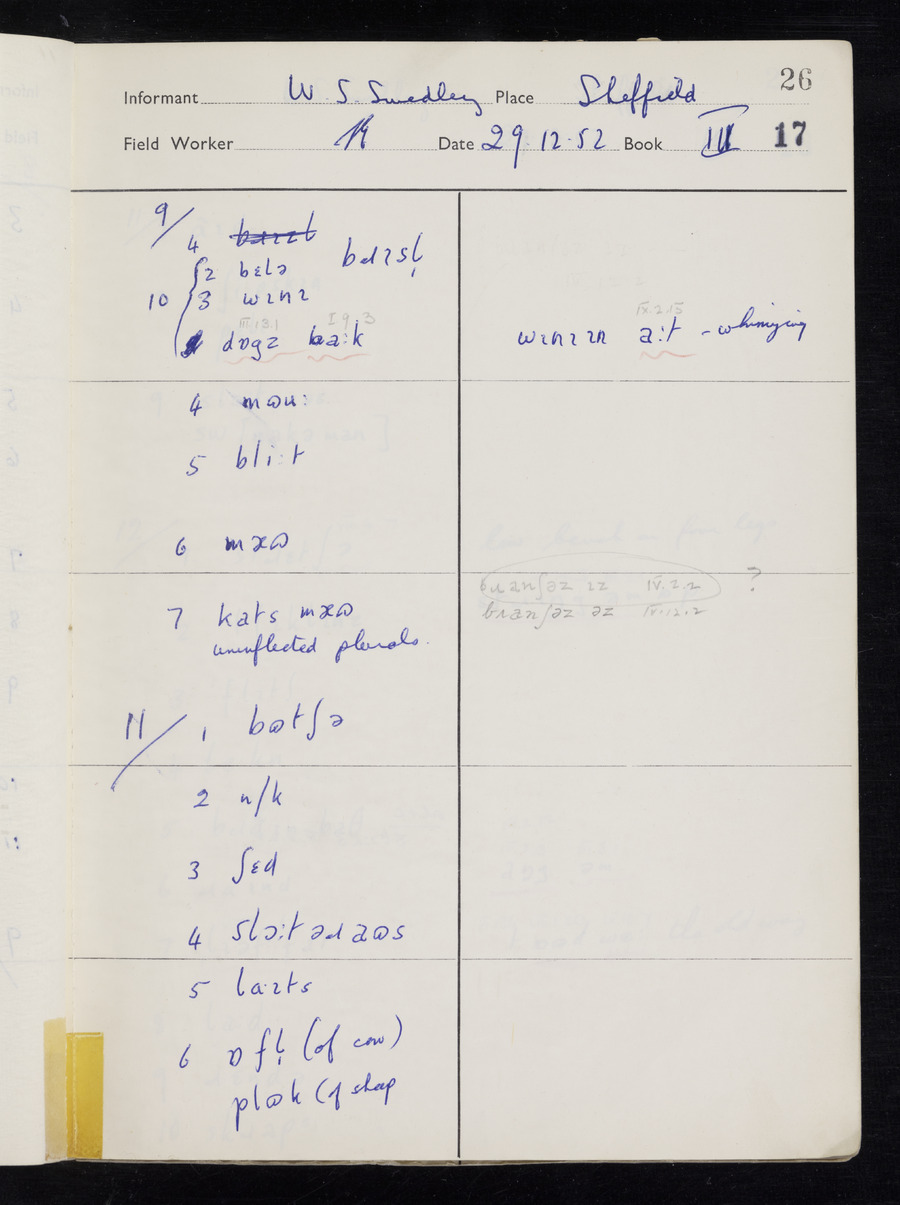 26
Informant W. S. Swedley Place Sheffield
Field Worker Date 29.12.52 Book III 17
9/
4 baɪsl̩
2 bɛlə
10 3 wɪnɪ
III.13.1 I 9 3
dɒgz ba:k
IX.2.15
wɪnɪɪn a:t - whinnying
4 mɷu:
5 bli:t
6 mɪɷ
7 kats mɪɷ
uninflected plurals.
branʃəz ɪz IV.2.2 ?
branʃəz əz IV.12.2
11/ 1 bɷtʃə
2 n/k
3 ʃɛd
4 slɔ:təd aɷs
5 la:ɪts
6 ɒfl̩ (of cow)
plɷk (of sheep